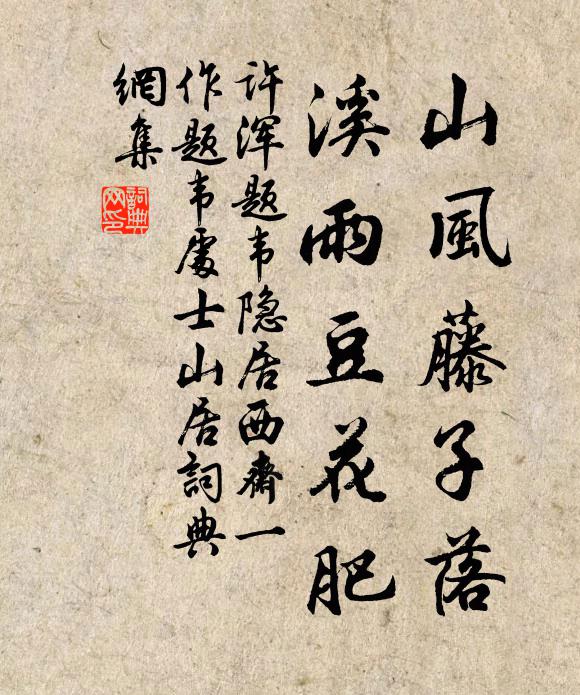 山風藤子落
溪雨豆花肥
许浑题韦隐居西齋一
作题韦處士山居詞典
網集
詞典
网印